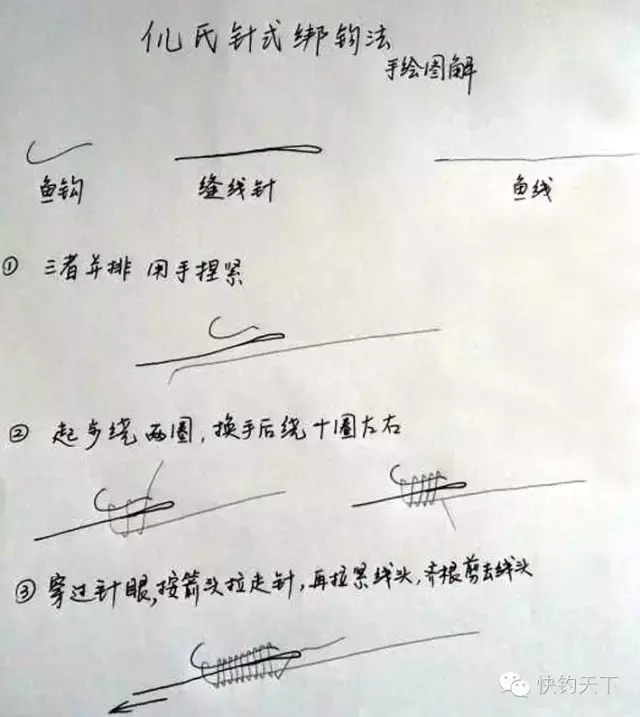 仇氏针式绑钩法
手绘图解
鱼钩 缝线针 鱼线
① 三者并排 用手捏紧
② 起步绕两圈,换手后绕十圈左右
③ 穿过针眼,按箭头拉走针,再拉紧线头,齐根剪去线头
快钓天下